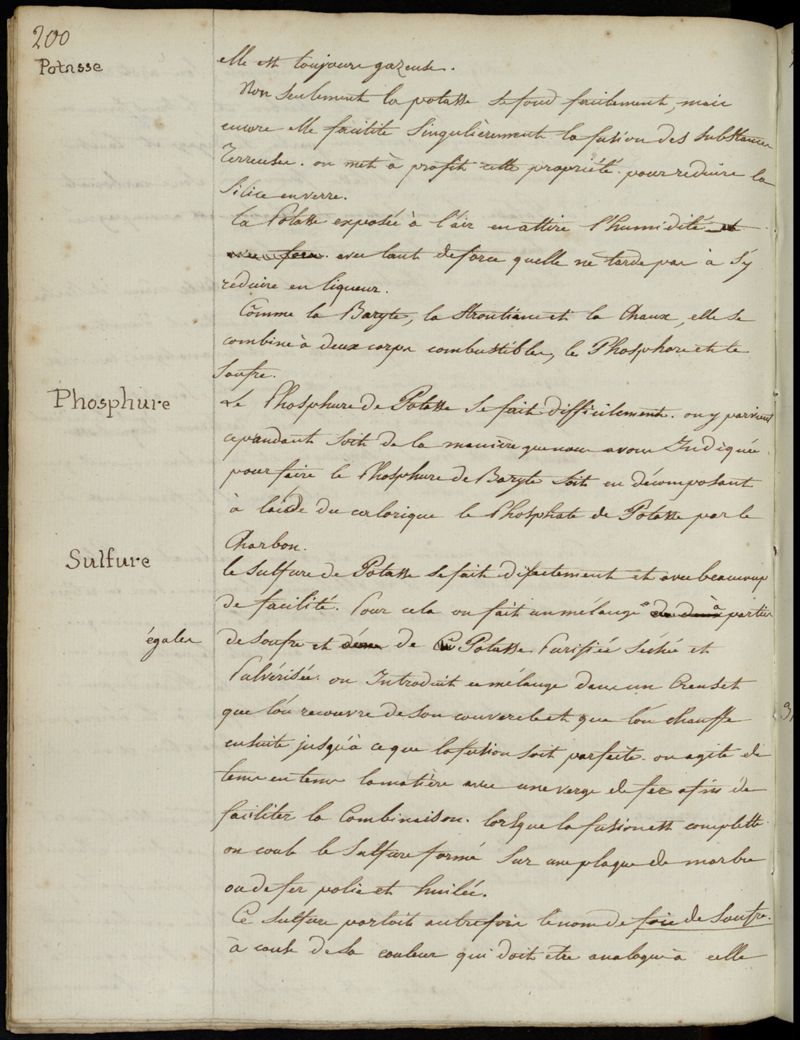 200
Potasse
elle est toujours gazeuse.
Non seulement la potasse se fond facilement, mais
encore elle facilite Singulièrement la fusion des Substances
Terreuses. on met à profit cette propriété pour réduire la
Silice en verre.
La Potasse exposée à l'air en attire l'humidité et
avec force. avec tant de force quelle ne tarde pas à s'y
réduire en liqueur.
Comme la Baryte, la Strontiane et la Chaux, elle se
combine à deux corps combustibles, le Phosphore et le
Soufre.
Phosphure
Le Phosphure de Potasse se fait difficilement. on y parvient
cependant soit de la manière que nous avons Indiquée
pour faire le Phosphure de Baryte soit en décomposant
à l'aide du calorique le Phosphate de Potasse par le
Charbon.
Sulfure
le Sulfure de Potasse se fait directement et avec beaucoup
de facilité. Pour cela on fait un mélange de deux à parties
égales
de Soufre et de Potasse Purifiée Séchée et
Pulvérisée. on Introduit ce mélange dans un Creuset
que l'on recouvre de son couvercle et que l'on chauffe
ensuite jusqu'à ce que la fusion soit parfaite. on agite de
tems en tems la matière avec une verge de fer afin de
faciliter la Combinaison. lorsque la fusion est complette
on coule le Sulfure formé Sur une plaque de marbre
ou de fer polie et huilée.
Ce Sulfure portoit autrefois le nom de foie de Soufre.
à cause de sa couleur qui doit etre analogue à celle